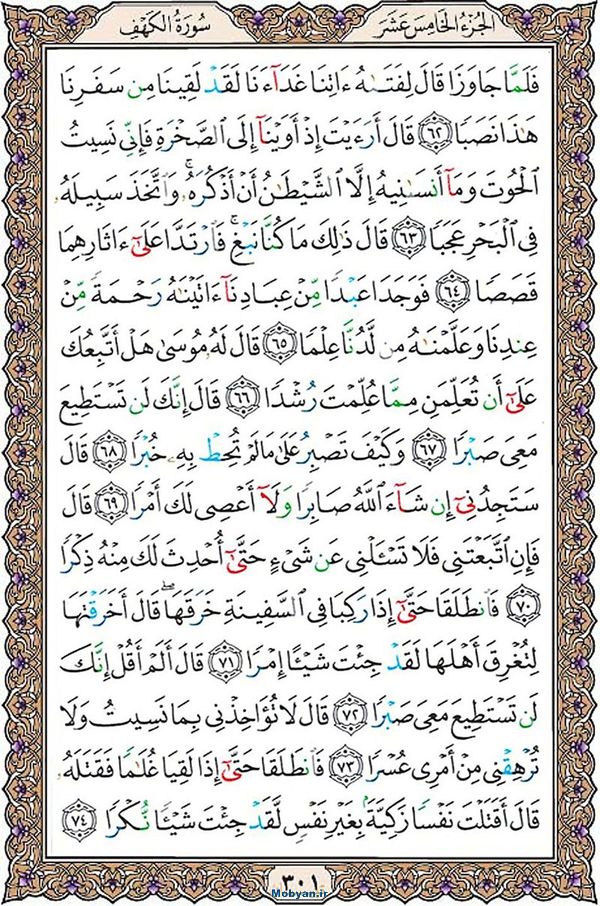 الجزء الخامس عشر
سورة الكهف
فَلَمَّا جَاوَزَا قَالَ لِفَتَىٰهُ ءَاتِنَا غَدَآءَنَا لَقَدْ لَقِينَا مِن سَفَرِنَا
هَٰذَا نَصَبًا ﴿٦٢﴾ قَالَ أَرَءَيْتَ إِذْ أَوَيْنَآ إِلَى ٱلصَّخْرَةِ فَإِنِّى نَسِيتُ
ٱلْحُوتَ وَمَآ أَنسَىٰنِيهُ إِلَّا ٱلشَّيْطَٰنُ أَنْ أَذْكُرَهُۥ ۚ وَٱتَّخَذَ سَبِيلَهُۥ
فِى ٱلْبَحْرِ عَجَبًا ﴿٦٣﴾ قَالَ ذَٰلِكَ مَا كُنَّا نَبْغِ ۚ فَٱرْتَدَّا عَلَىٰٓ ءَاثَارِهِمَا
قَصَصًا ﴿٦٤﴾ فَوَجَدَا عَبْدًا مِّنْ عِبَادِنَآ ءَاتَيْنَٰهُ رَحْمَةً مِّنْ
عِندِنَا وَعَلَّمْنَٰهُ مِن لَّدُنَّا عِلْمًا ﴿٦٥﴾ قَالَ لَهُۥ مُوسَىٰ هَلْ أَتَّبِعُكَ
عَلَىٰٓ أَن تُعَلِّمَنِ مِمَّا عُلِّمْتَ رُشْدًا ﴿٦٦﴾ قَالَ إِنَّكَ لَن تَسْتَطِيعَ
مَعِىَ صَبْرًا ﴿٦٧﴾ وَكَيْفَ تَصْبِرُ عَلَىٰ مَا لَمْ تُحِطْ بِهِۦ خُبْرًا ﴿٦٨﴾ قَالَ
سَتَجِدُنِىٓ إِن شَآءَ ٱللَّهُ صَابِرًا وَلَآ أَعْصِى لَكَ أَمْرًا ﴿٦٩﴾ قَالَ
فَإِنِ ٱتَّبَعْتَنِى فَلَا تَسْـَٔلْنِى عَن شَىْءٍ حَتَّىٰٓ أُحْدِثَ لَكَ مِنْهُ ذِكْرًا
﴿٧٠﴾ فَٱنطَلَقَا حَتَّىٰٓ إِذَا رَكِبَا فِى ٱلسَّفِينَةِ خَرَقَهَا ۖ قَالَ أَخَرَقْتَهَا
لِتُغْرِقَ أَهْلَهَا لَقَدْ جِئْتَ شَيْـًٔا إِمْرًا ﴿٧١﴾ قَالَ أَلَمْ أَقُلْ إِنَّكَ
لَن تَسْتَطِيعَ مَعِىَ صَبْرًا ﴿٧٢﴾ قَالَ لَا تُؤَاخِذْنِى بِمَا نَسِيتُ وَلَا
تُرْهِقْنِى مِنْ أَمْرِى عُسْرًا ﴿٧٣﴾ فَٱنطَلَقَا حَتَّىٰٓ إِذَا لَقِيَا غُلَٰمًا فَقَتَلَهُۥ
قَالَ أَقَتَلْتَ نَفْسًا زَكِيَّةًۢ بِغَيْرِ نَفْسٍ لَّقَدْ جِئْتَ شَيْـًٔا نُّكْرًا ﴿٧٤﴾
٣٠١
Mobyan.ir